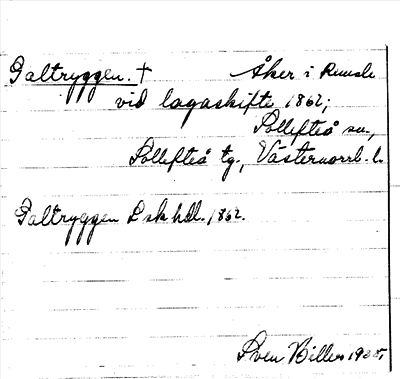 Galtryggen. † Åker i Remsle
vid lagaskifte 1862;
Sollefteå sn.,
Sollefteå tg., Västernorrl. l.
Galtryggen L sk hdl. 1862.
Sven Billes